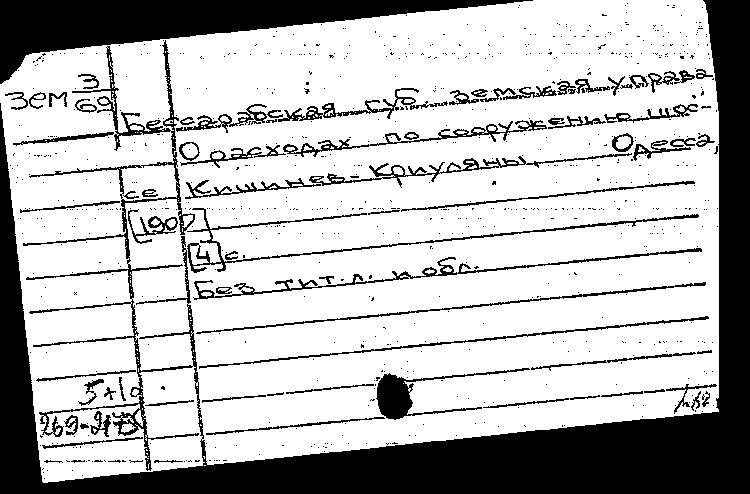 Зем 3/69
Бессарабская губ. земская управа
О расходах по сооружению шос-
се Кишинев-Криуляны, Одесса,
[1907]
[4] с.
Без тит. л. и обл.
5+10